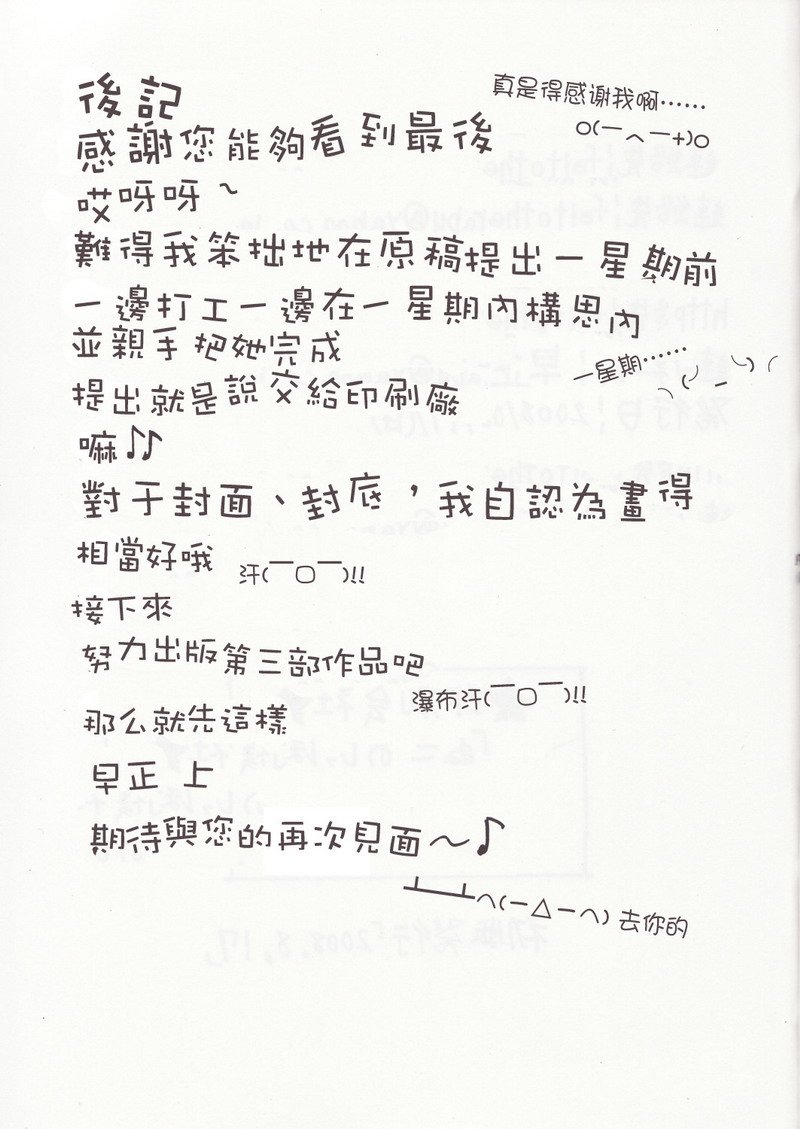 後記
真是得感谢我啊……
o(一︿一+)o
感謝您能夠看到最後
哎呀呀～
難得我笨拙地在原稿提出一星期前
一邊打工一邊在一星期內構思內
並親手把她完成
一星期……
提出就是說交給印刷廠
嘛♪♪
對于封面、封底，我自認為畫得
相當好哦
汗(￣口￣)!!
接下來
努力出版第三部作品吧
瀑布汗(￣口￣)!!
那么就先這樣
早正 上
期待與您的再次見面～♪
┴─┴へ(一△一へ) 去你的